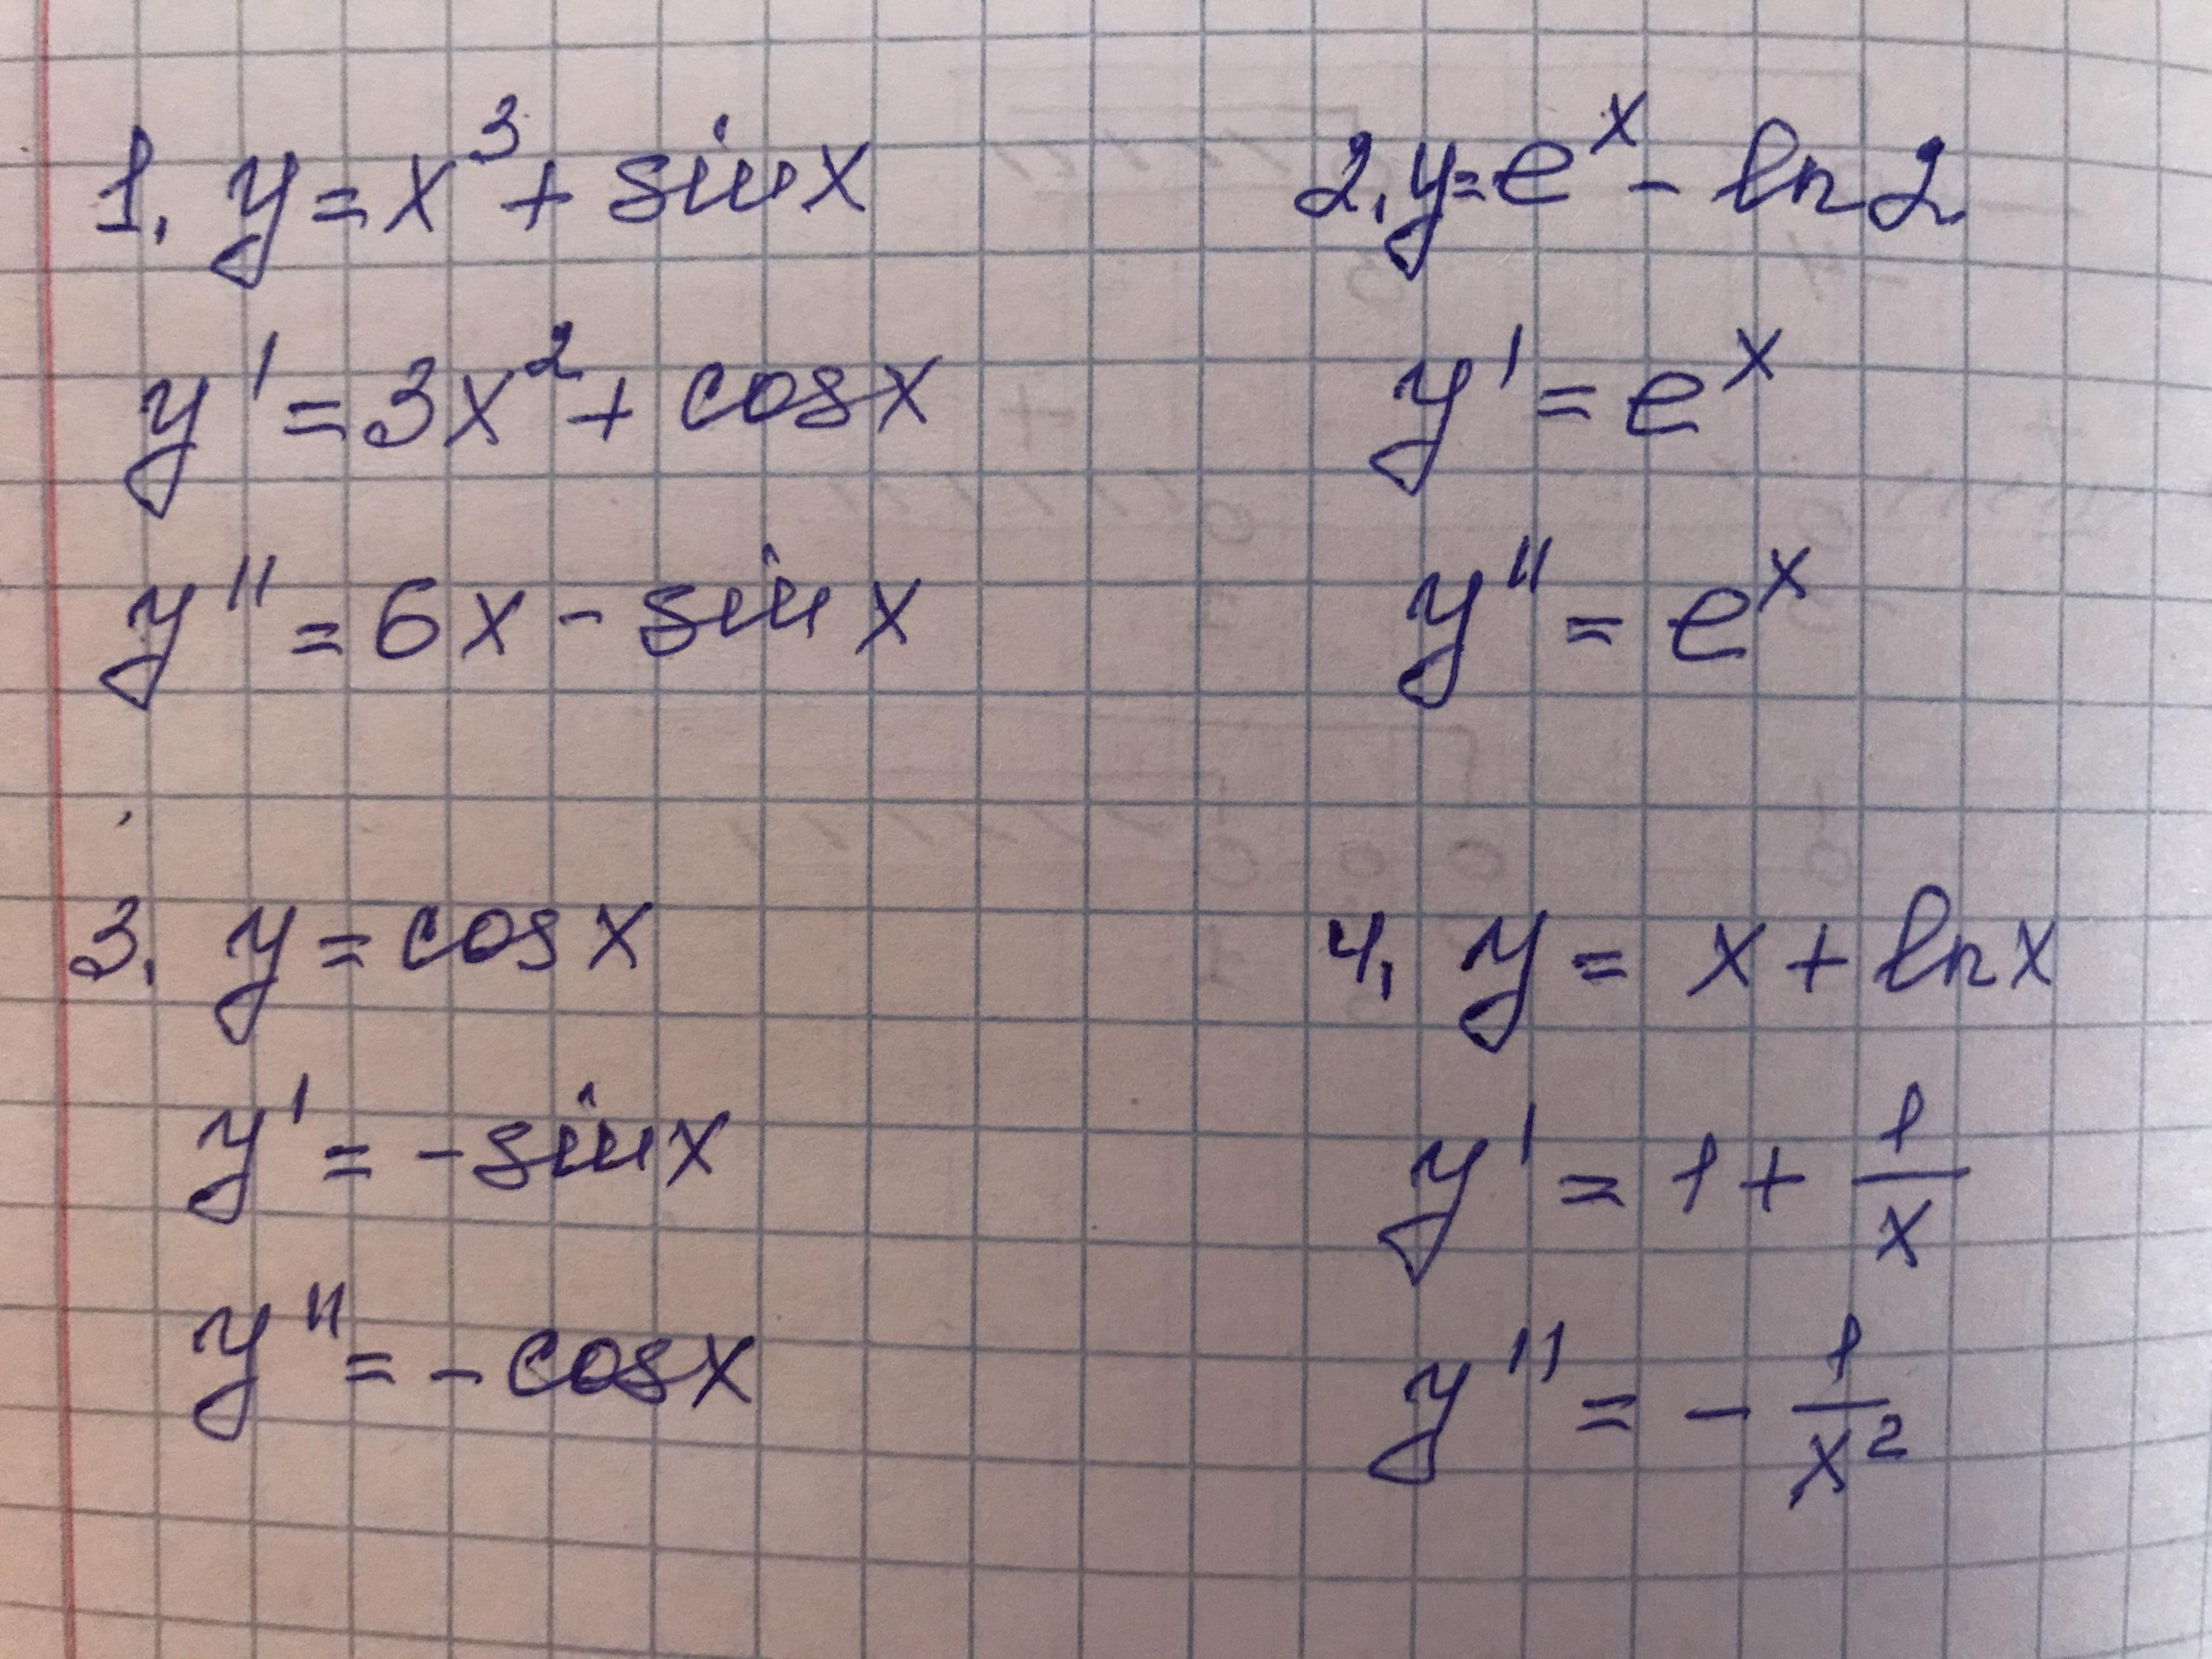 1. y = x³ + sin x
y' = 3x² + cos x
y'' = 6x - sin x
2. y = eˣ - ln 2
y' = eˣ
y'' = eˣ
3. y = cos x
y' = - sin x
y'' = - cos x
4. y = x + ln x
y' = 1 + 1/x
y'' = - 1/x²